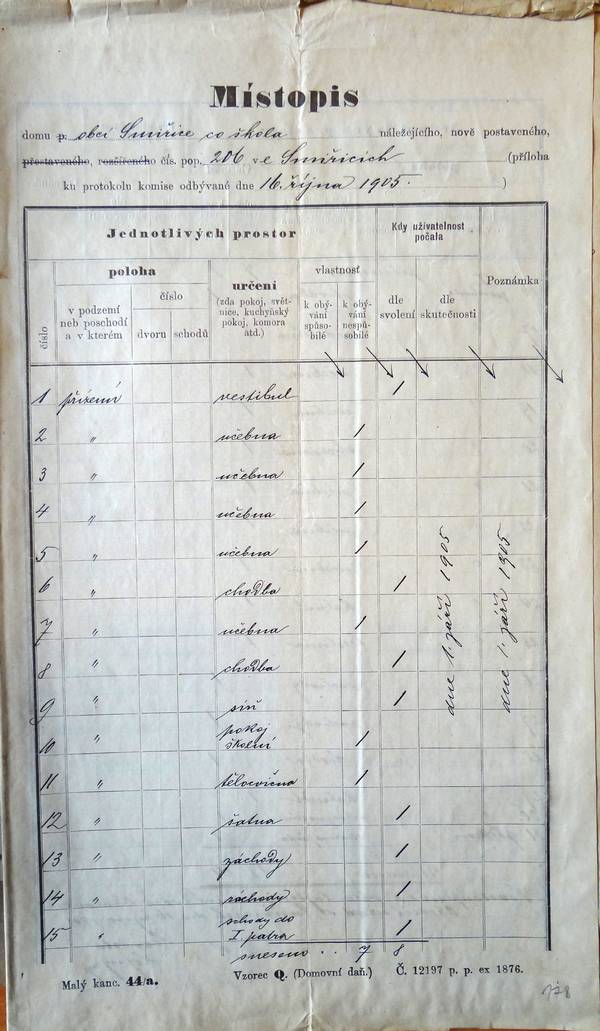 Místopis
domu p. obcí Smiřice co škola náležejícího, nově postaveného,
přestaveného, rozšířeného čís. pop. 206 ve Smiřicích (příloha
ku protokolu komise odbývané dne 16. října 1905. )
Jednotlivých prostor
Kdy užívatelnost počala
Poznámka
číslo
poloha
v podzemí neb poschodí a v kterém
číslo
dvoru
schodů
určení
(zda pokoj, světnice, kuchyňský pokoj, komora atd.)
vlastnosť
k obývání spůsobilé
k obývání nespůsobilé
dle svolení
dle skutečnosti
1 přízemí vestibul /
2 " učebna /
3 " učebna /
4 " učebna /
5 " učebna /
6 " chodba /
7 " učebna /
8 " chodba /
9 " síň /
10 " pokoj
školní /
11 " tělocvična /
12 " šatna /
13 " záchody /
14 " záchody /
15 " schody do
I. patra /
sneseno . . 7 8
dne 1. září 1905
dne 1. září 1905
Malý kanc. 44/a.
Vzorec Q. (Domovní daň.) Č. 12197 p. p. ex 1876.